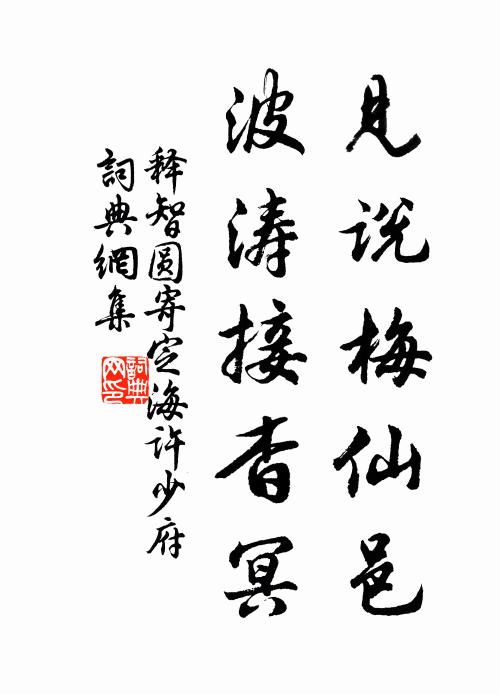 见说梅仙邑
波涛接杳冥
释智圆寄定海许少府
詞典網集
詞典网印